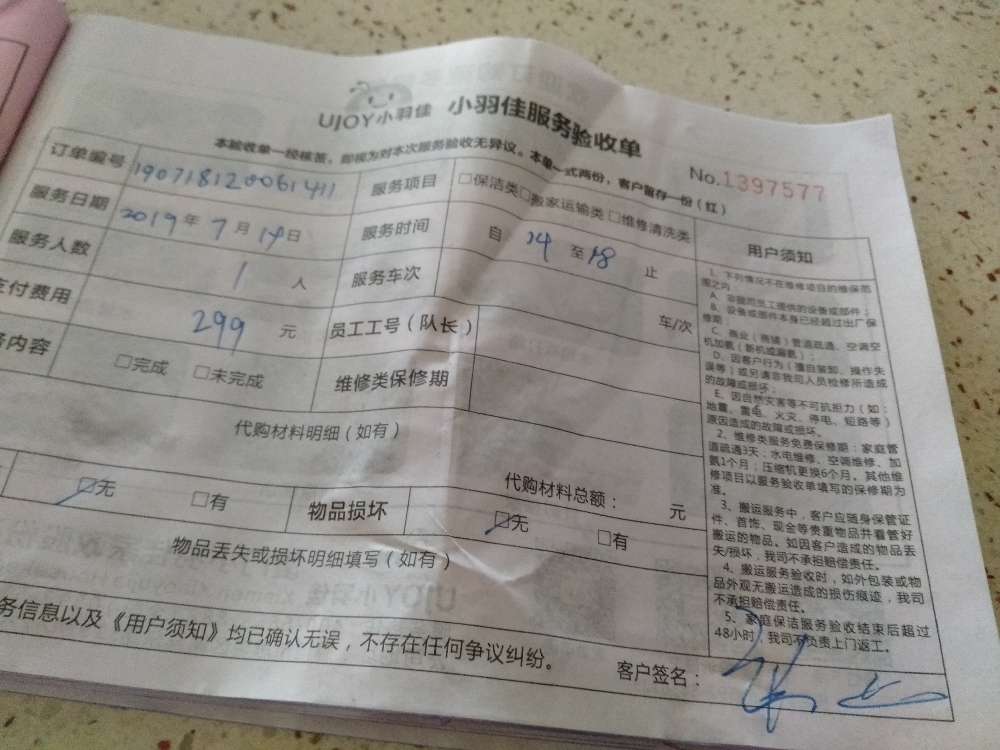 UJOY小羽佳 小羽佳服务验收单
本验收单一经核签，即视为对本次服务验收无异议。本单一式两份，客户留存一份（红）
No.1397577
订单编号 190718120061411 服务项目 □保洁类□搬家运输类 □维修清洗类
服务日期 2019年7月14日 服务时间 自 14 至 18 止
服务人数 1 人 服务车次 车/次
支付费用 299 元 员工工号（队长）
务内容 □完成 □未完成 维修类保修期
代购材料明细（如有）
代购材料总额： 元
☑无 □有 物品损坏 ☑无 □有
物品丢失或损坏明细填写（如有）
务信息以及《用户须知》均已确认无误，不存在任何争议纠纷。
客户签名：
用户须知
1、下列情况不在维修项目的维保范
围之内
A、非我司员工提供的设备或部件；
B、设备或部件本身已经超过出厂保
修期
C、商业（商铺）管道疏通、空调空
机加氨（新机或漏氨）；
D、因客户行为（擅自装卸、操作失
误等）或另请非我司人员检修所造成
的故障或损坏；
E、因自然灾害等不可抗拒力（如：
地震、雷电、火灾、停电、短路等）
原因造成的故障或损坏。
2、维修类服务免费保修期：家庭管
道疏通3天；水电维修、空调维修、加
氨1个月；压缩机更换6个月。其他维
修项目以服务验收单填写的保修期为
准。
3、搬运服务中，客户应随身保管证
件、首饰、现金等贵重物品并看管好
搬运的物品。如因客户造成的物品丢
失/损坏，我司不承担赔偿责任。
4、搬运服务验收时，如外包装或物
品外观无搬运造成的损伤痕迹，我司
不承担赔偿责任。
5、家庭保洁服务验收结束后超过
48小时，我司不负责上门返工。